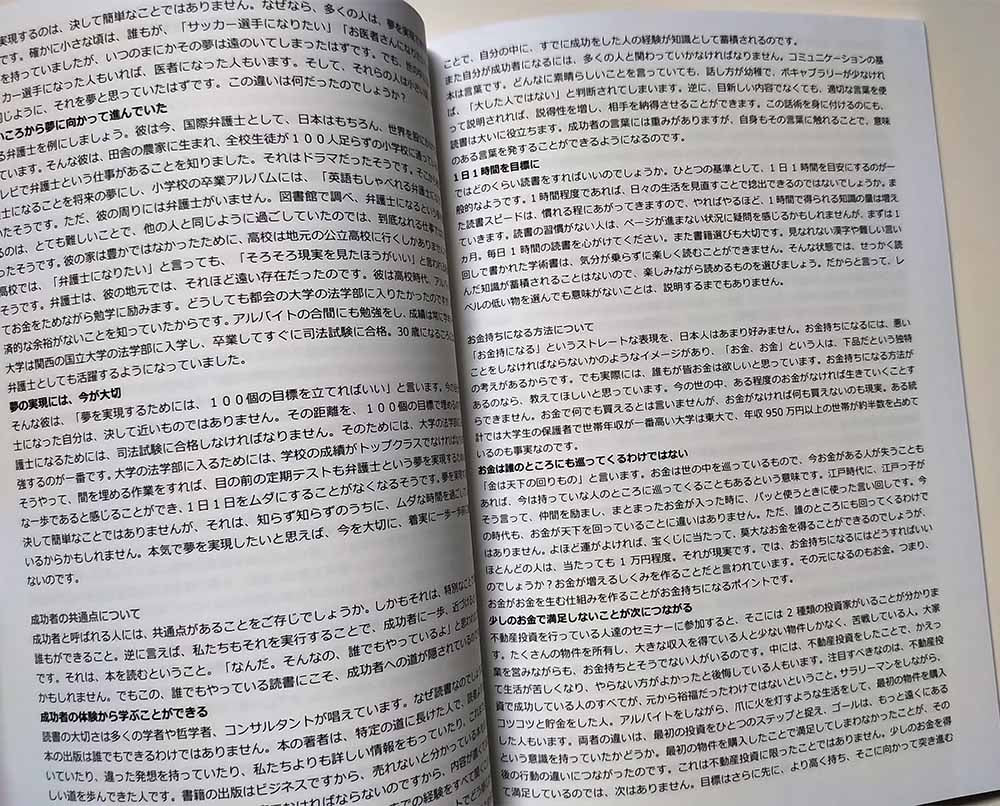 実現するのは、決して簡単なことではありません。なぜなら、多くの人は、夢を実現
です。確かに小さな頃は、誰もが、「サッカー選手になりたい」「お医者さんになりたい
を持っていましたが、いつのまにかその夢は遠のいてしまったはずです。でも、世の中
カー選手になった人もいれば、医者になった人もいます。そして、それらの人は小さい
同じように、それを夢と思っていたはずです。この違いは何だったのでしょうか?
いころから夢に向かって進んでいた
る弁護士を例にしましょう。彼は今、国際弁護士として、日本はもちろん、世界を股に
ています。そんな彼は、田舎の農家に生まれ、全校生徒が100人足らずの小学校に通ってい
レビで弁護士という仕事があることを知りました。それはドラマだったそうです。そこから
士になることを将来の夢にし、小学校の卒業アルバムには、「英語もしゃべれる弁護士
たそうです。ただ、彼の周りには弁護士がいません。図書館で調べ、弁護士になるという
るのは、とても難しいことで、他の人と同じように過ごしていたのでは、到底なれる仕事では
ったそうです。彼の家は豊かではなかったために、高校は地元の公立高校に行くしかありません
高校では、「弁護士になりたい」と言っても、「そろそろ現実を見たほうがいい」と言われ
そうです。弁護士は、彼の地元では、それほど遠い存在だったのです。彼は高校時代、アルバ
てお金をためながら勉学に励みます。どうしても都会の大学の法学部に入りたかったのです
済的な余裕がないことを知っていたからです。アルバイトの合間にも勉強をし、成績は常に
大学は関西の国立大学の法学部に入学し、卒業してすぐに司法試験に合格。30歳になるころには
弁護士としても活躍するようになっていました。
夢の実現には、今が大切
そんな彼は、「夢を実現するためには、100個の目標を立てればいい」と言います。今の
士になった自分は、決して近いものではありません。その距離を、100個の目標で埋めるの
護士になるためには、司法試験に合格しなければなりません。そのためには、大学の法学部に
強するのが一番です。大学の法学部に入るためには、学校の成績がトップクラスでなければ
そうやって、間を埋める作業をすれば、目の前の定期テストも弁護士という夢を実現するため
な一歩であると感じることができ、1日1日をムダにすることがなくなるそうです。夢を実現
決して簡単なことではありませんが、それは、知らず知らずのうちに、ムダな時間を過ごして
いるからかもしれません。本気で夢を実現したいと思えば、今を大切に、着実に一歩一歩
ないのです。
成功者の共通点について
成功者と呼ばれる人には、共通点があることをご存じでしょうか。しかもそれは、特別なこと
誰もができること。逆に言えば、私たちもそれを実行することで、成功者に一歩、近づける
です。それは、本を読むということ。「なんだ。そんなの、誰でもやっているよ」と思われ
かもしれません。でもこの、誰でもやっている読書にこそ、成功者への道が隠されている
成功者の体験から学ぶことができる
読書の大切さは多くの学者や哲学者、コンサルタントが唱えています。なぜ読書なのでしょ
本の出版は誰でもできるわけではありません。本の著者は、特定の道に長けた人で、読者より
いていたり、違った発想を持っていたり、私たちよりも詳しい情報をもっていたり、これまで
しい道を歩んできた人です。書籍の出版はビジネスですから、売れないと分かっている本
なければならないのですから、内容が
での経験をすべて聞く
ことで、自分の中に、すでに成功をした人の経験が知識として蓄積されるのです。
また自分が成功者になるには、多くの人と関わっていかなければなりません。コミュニケーションの基
本は言葉です。どんなに素晴らしいことを言っていても、話し方が幼稚で、ボキャブラリーが少なけれ
ば、「大した人ではない」と判断されてしまいます。逆に、目新しい内容でなくても、適切な言葉を使
って説明されれば、説得性を増し、相手を納得させることができます。この話術を身に付けるのにも、
読書は大いに役立ちます。成功者の言葉には重みがありますが、自身もその言葉に触れることで、意味
のある言葉を発することができるようになるのです。
1日1時間を目標に
ではどのくらい読書をすればいいのでしょうか。ひとつの基準として、1日1時間を目安にするのが一
般的なようです。1時間程度であれば、日々の生活を見直すことで捻出できるのではないでしょうか。ま
た読書スピードは、慣れる程にあがってきますので、やればやるほど、1時間で得られる知識の量は増え
ていきます。読書の習慣がない人は、ページが進まない状況に疑問を感じるかもしれませんが、まずは1
カ月。毎日1時間の読書を心がけてください。また書籍選びも大切です。見なれない漢字や難しい言い
回しで書かれた学術書は、気分が乗らずに楽しく読むことができません。そんな状態では、せっかく読
んだ知識が蓄積されることはないので、楽しみながら読めるものを選びましょう。だからと言って、レ
ベルの低い物を選んでも意味がないことは、説明するまでもありません。
お金持ちになる方法について
「お金持になる」というストレートな表現を、日本人はあまり好みません。お金持ちになるには、悪い
ことをしなければならないかのようなイメージがあり、「お金、お金」という人は、下品だという独特
の考えがあるからです。でも実際には、誰もが皆お金は欲しいと思っています。お金持ちになる方法が
あるのなら、教えてほしいと思っています。今の世の中、ある程度のお金がなければ生きていくことす
らできません。お金で何でも買えるとは言いませんが、お金がなければ何も買えないのも現実。ある統
計では大学生の保護者で世帯年収が一番高い大学は東大で、年収950万円以上の世帯が約半数を占めて
いるのも事実なのです。
お金は誰のところにも巡ってくるわけではない
「金は天下の回りもの」と言います。お金は世の中を巡っているもので、今お金がある人が失うことも
あれば、今は持っていな人のところに巡ってくることもあるという意味です。江戸時代に、江戸っ子が
そう言って、仲間を励まし、まとまったお金が入った時に、パッと使うときに使った言い回しです。今
の時代も、お金が天下を回っていることに違いはありません。ただ、誰のところにも回ってくるわけで
はありません。よほど運がよければ、宝くじに当たって、莫大なお金を得ることができるのでしょうが、
ほとんどの人は、当たっても1万円程度。それが現実です。では、お金持ちになるにはどうすればいい
のでしょうか?お金が増えるしくみを作ることだと言われています。その元になるのもお金。つまり、
お金がお金を生む仕組みを作ることがお金持ちになるポイントです。
少しのお金で満足しないことが次につながる
不動産投資を行っている人達のセミナーに参加すると、そこには2種類の投資家がいることが分かりま
す。たくさんの物件を所有し、大きな収入を得ている人と少ない物件しかなく、苦戦している人。大家
業を営みながらも、お金持ちとそうでない人がいるのです。中には、不動産投資をしたことで、かえっ
て生活が苦しくなり、やらない方がよかったと後悔している人もいます。注目すべきなのは、不動産投
資で成功している人のすべてが、元から裕福だったわけではないということ。サラリーマンをしながら、
コツコツと貯金をした人。アルバイトをしながら、爪に火を灯すような生活をして、最初の物件を購入
した人もいます。両者の違いは、最初の投資をひとつのステップと捉え、ゴールは、もっと遠くにある
という意識を持っていたかどうか。最初の物件を購入したことで満足してしまわなかったことが、その
後の行動の違いにつながったのです。これは不動産投資に限ったことではありません。少しのお金を得
て満足しているのでは、次はありません。目標はさらに先に、より高く持ち、そこに向かって突き進む